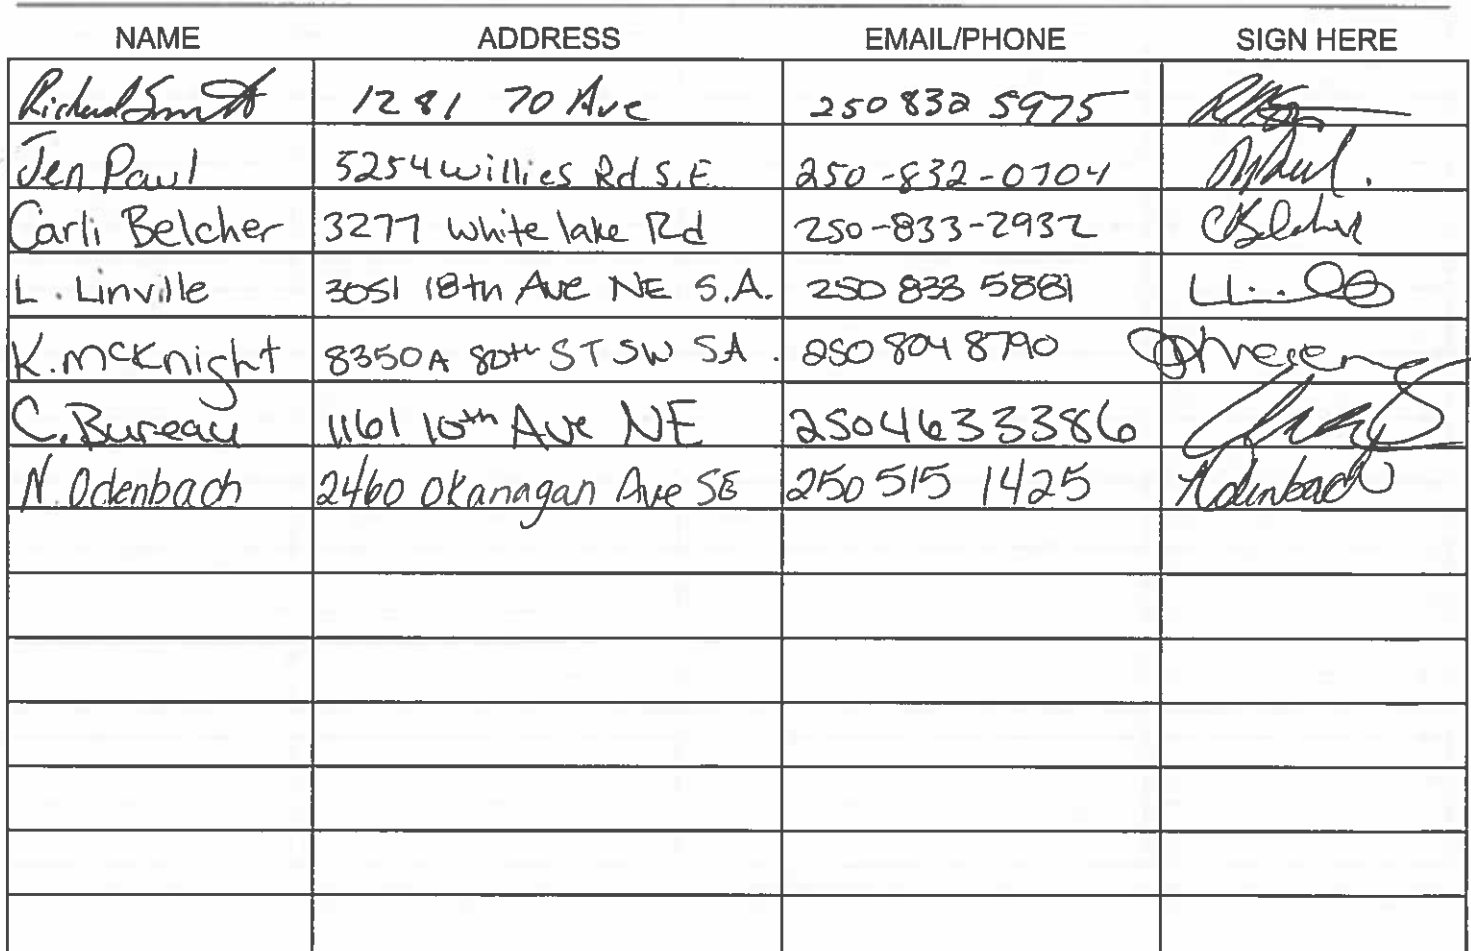 NAME ADDRESS EMAIL/PHONE SIGN HERE
Richard Smith 1281 70 Ave 250 832 5975
Jen Paul 5254 Willies Rd S.E. 250-832-0704 Paul.
Carli Belcher 3277 White lake Rd 250-833-2932 CBelcher
L. Linville 3051 18th Ave NE S.A. 250 833 5881
K. McKnight 8350A 80th ST SW SA. 250 804 8790
C. Bureau 1161 10th Ave NE 2504633386
N. Odenbach 2460 Okanagan Ave SE 250 515 1425 NOdenbach